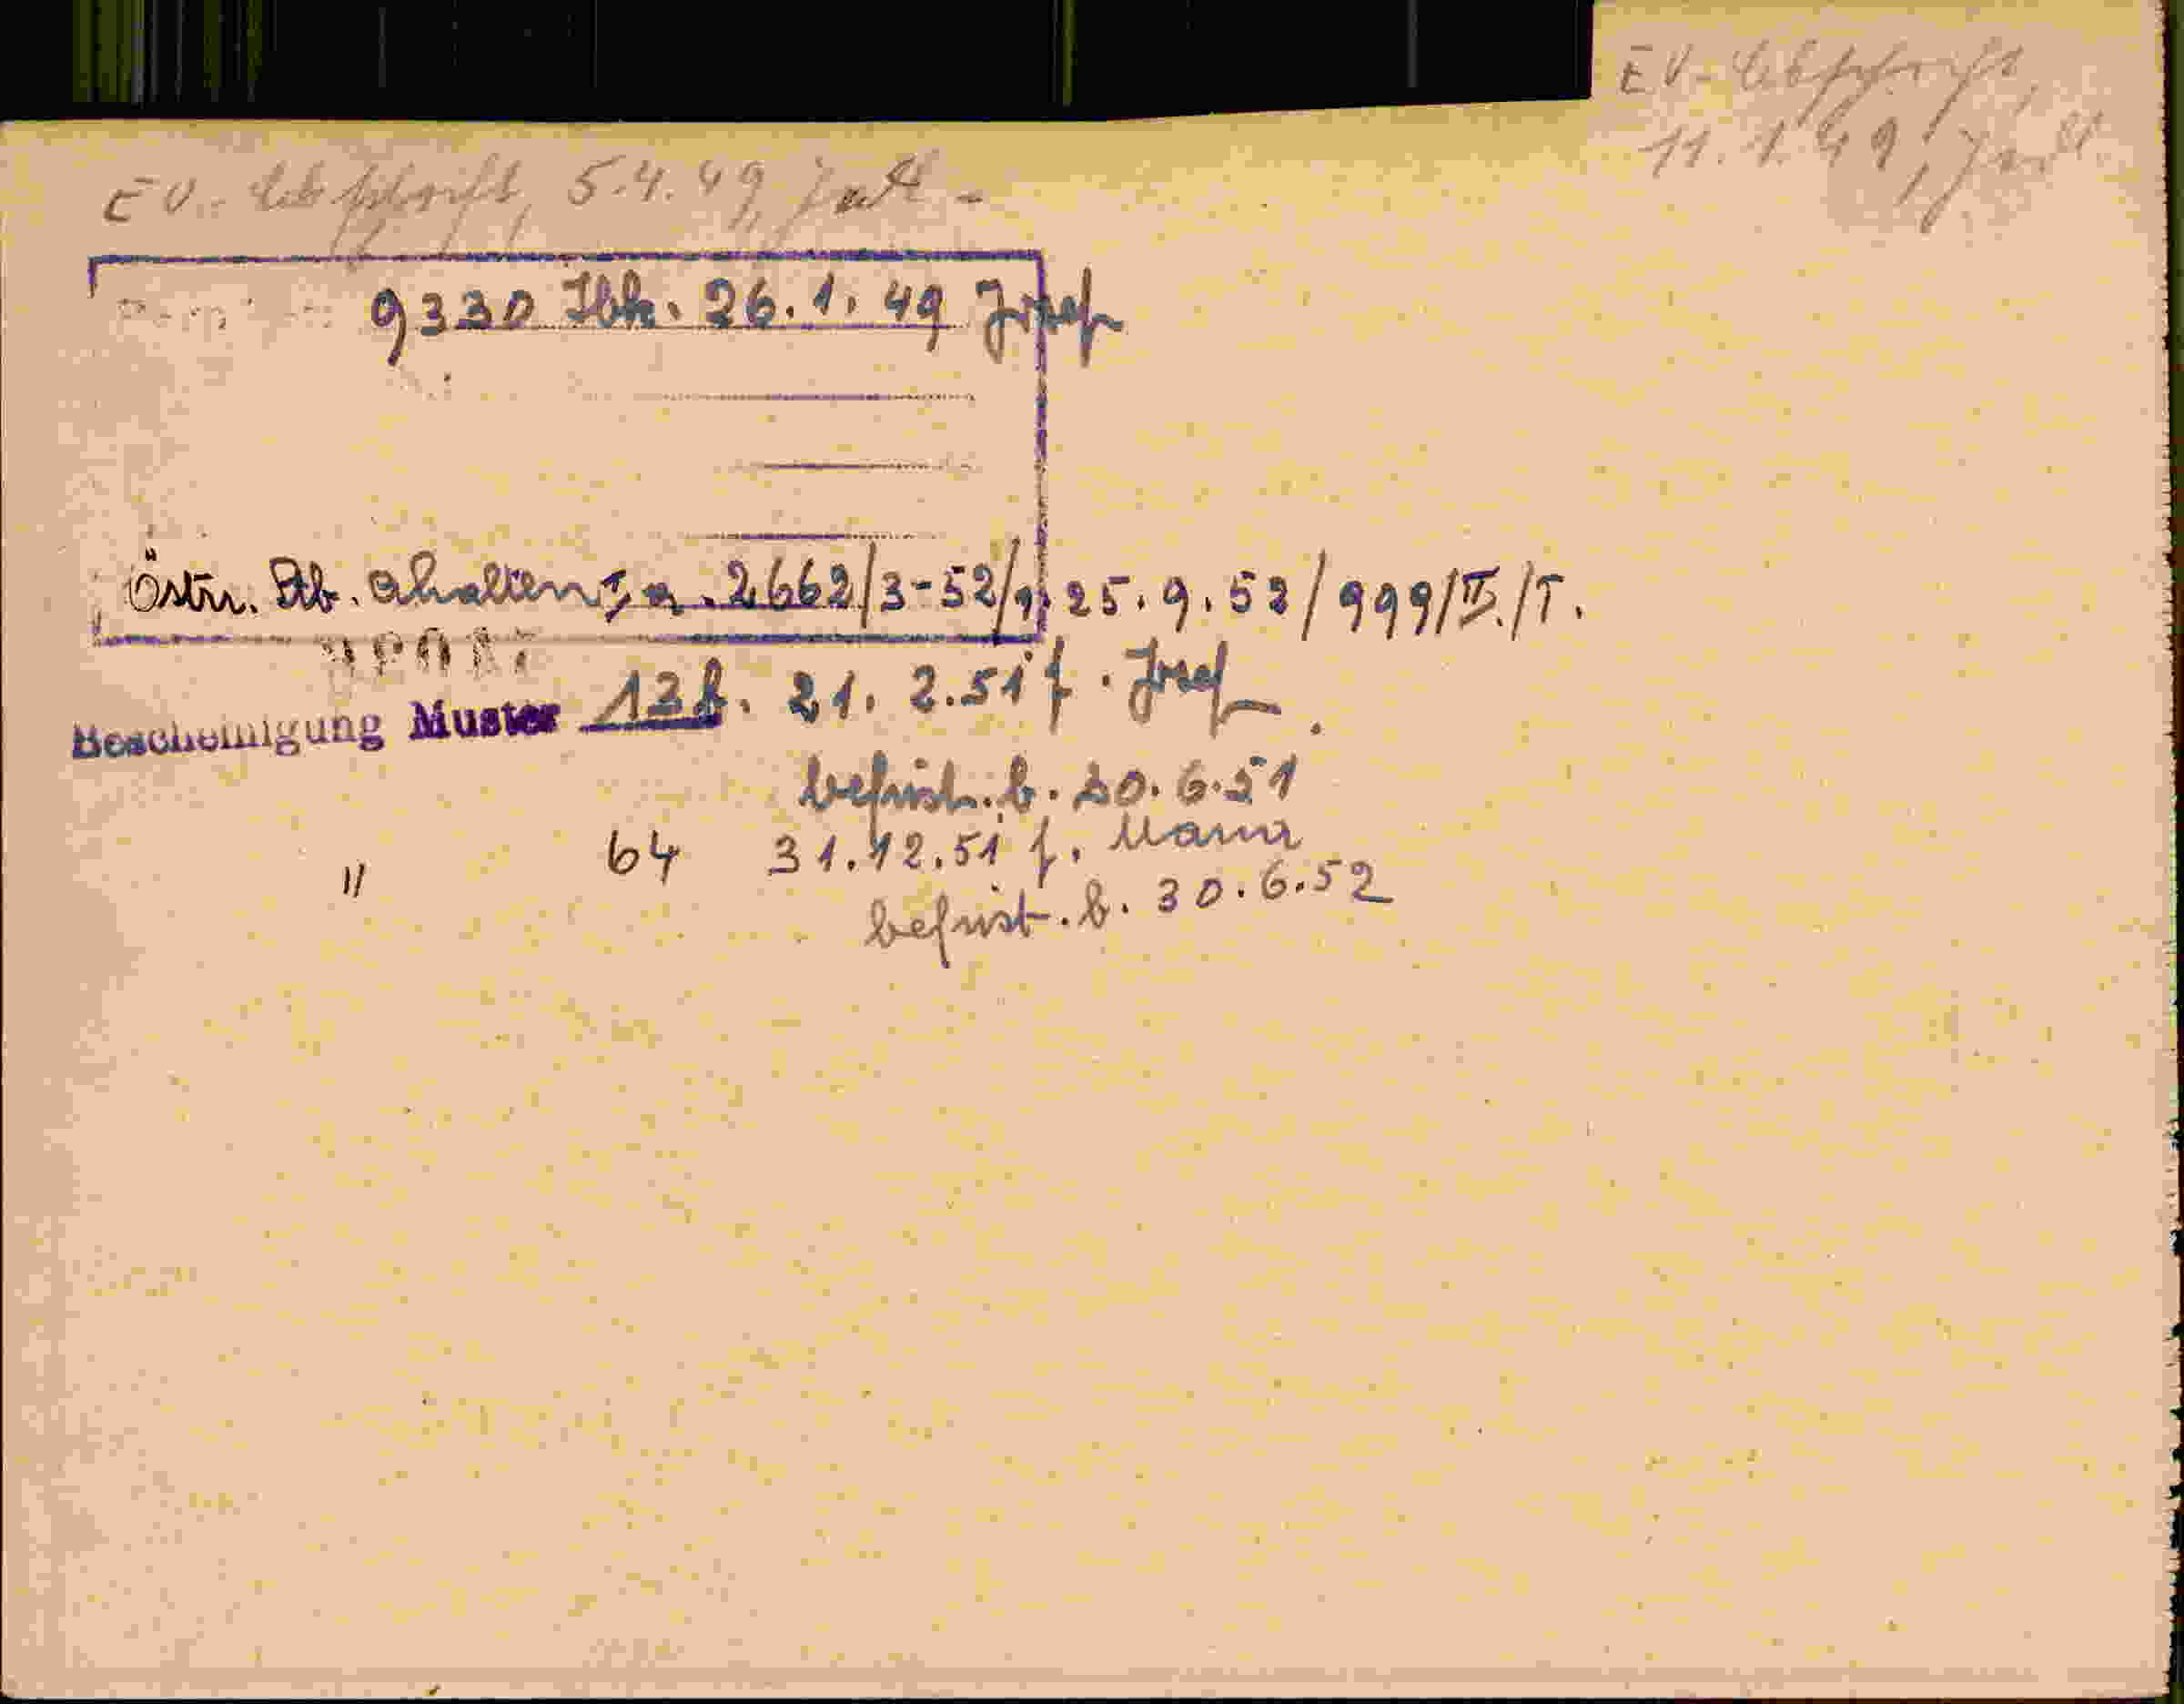 EV- Abschrift,
11.1.49,
EV.- Abschrift, 5.4.49,
9330 Ibk. 26.1.49 Josef
Östr. Stb. erhalten Ia. 2662/3-52/ 25.9.52/999/II./T.
Bescheinigung Muster 13b. 21. 2.51 f. Josef
befrist. b. 30.6.51
" 64 31.12.51 f. Maria
befrist. b. 30.6.52